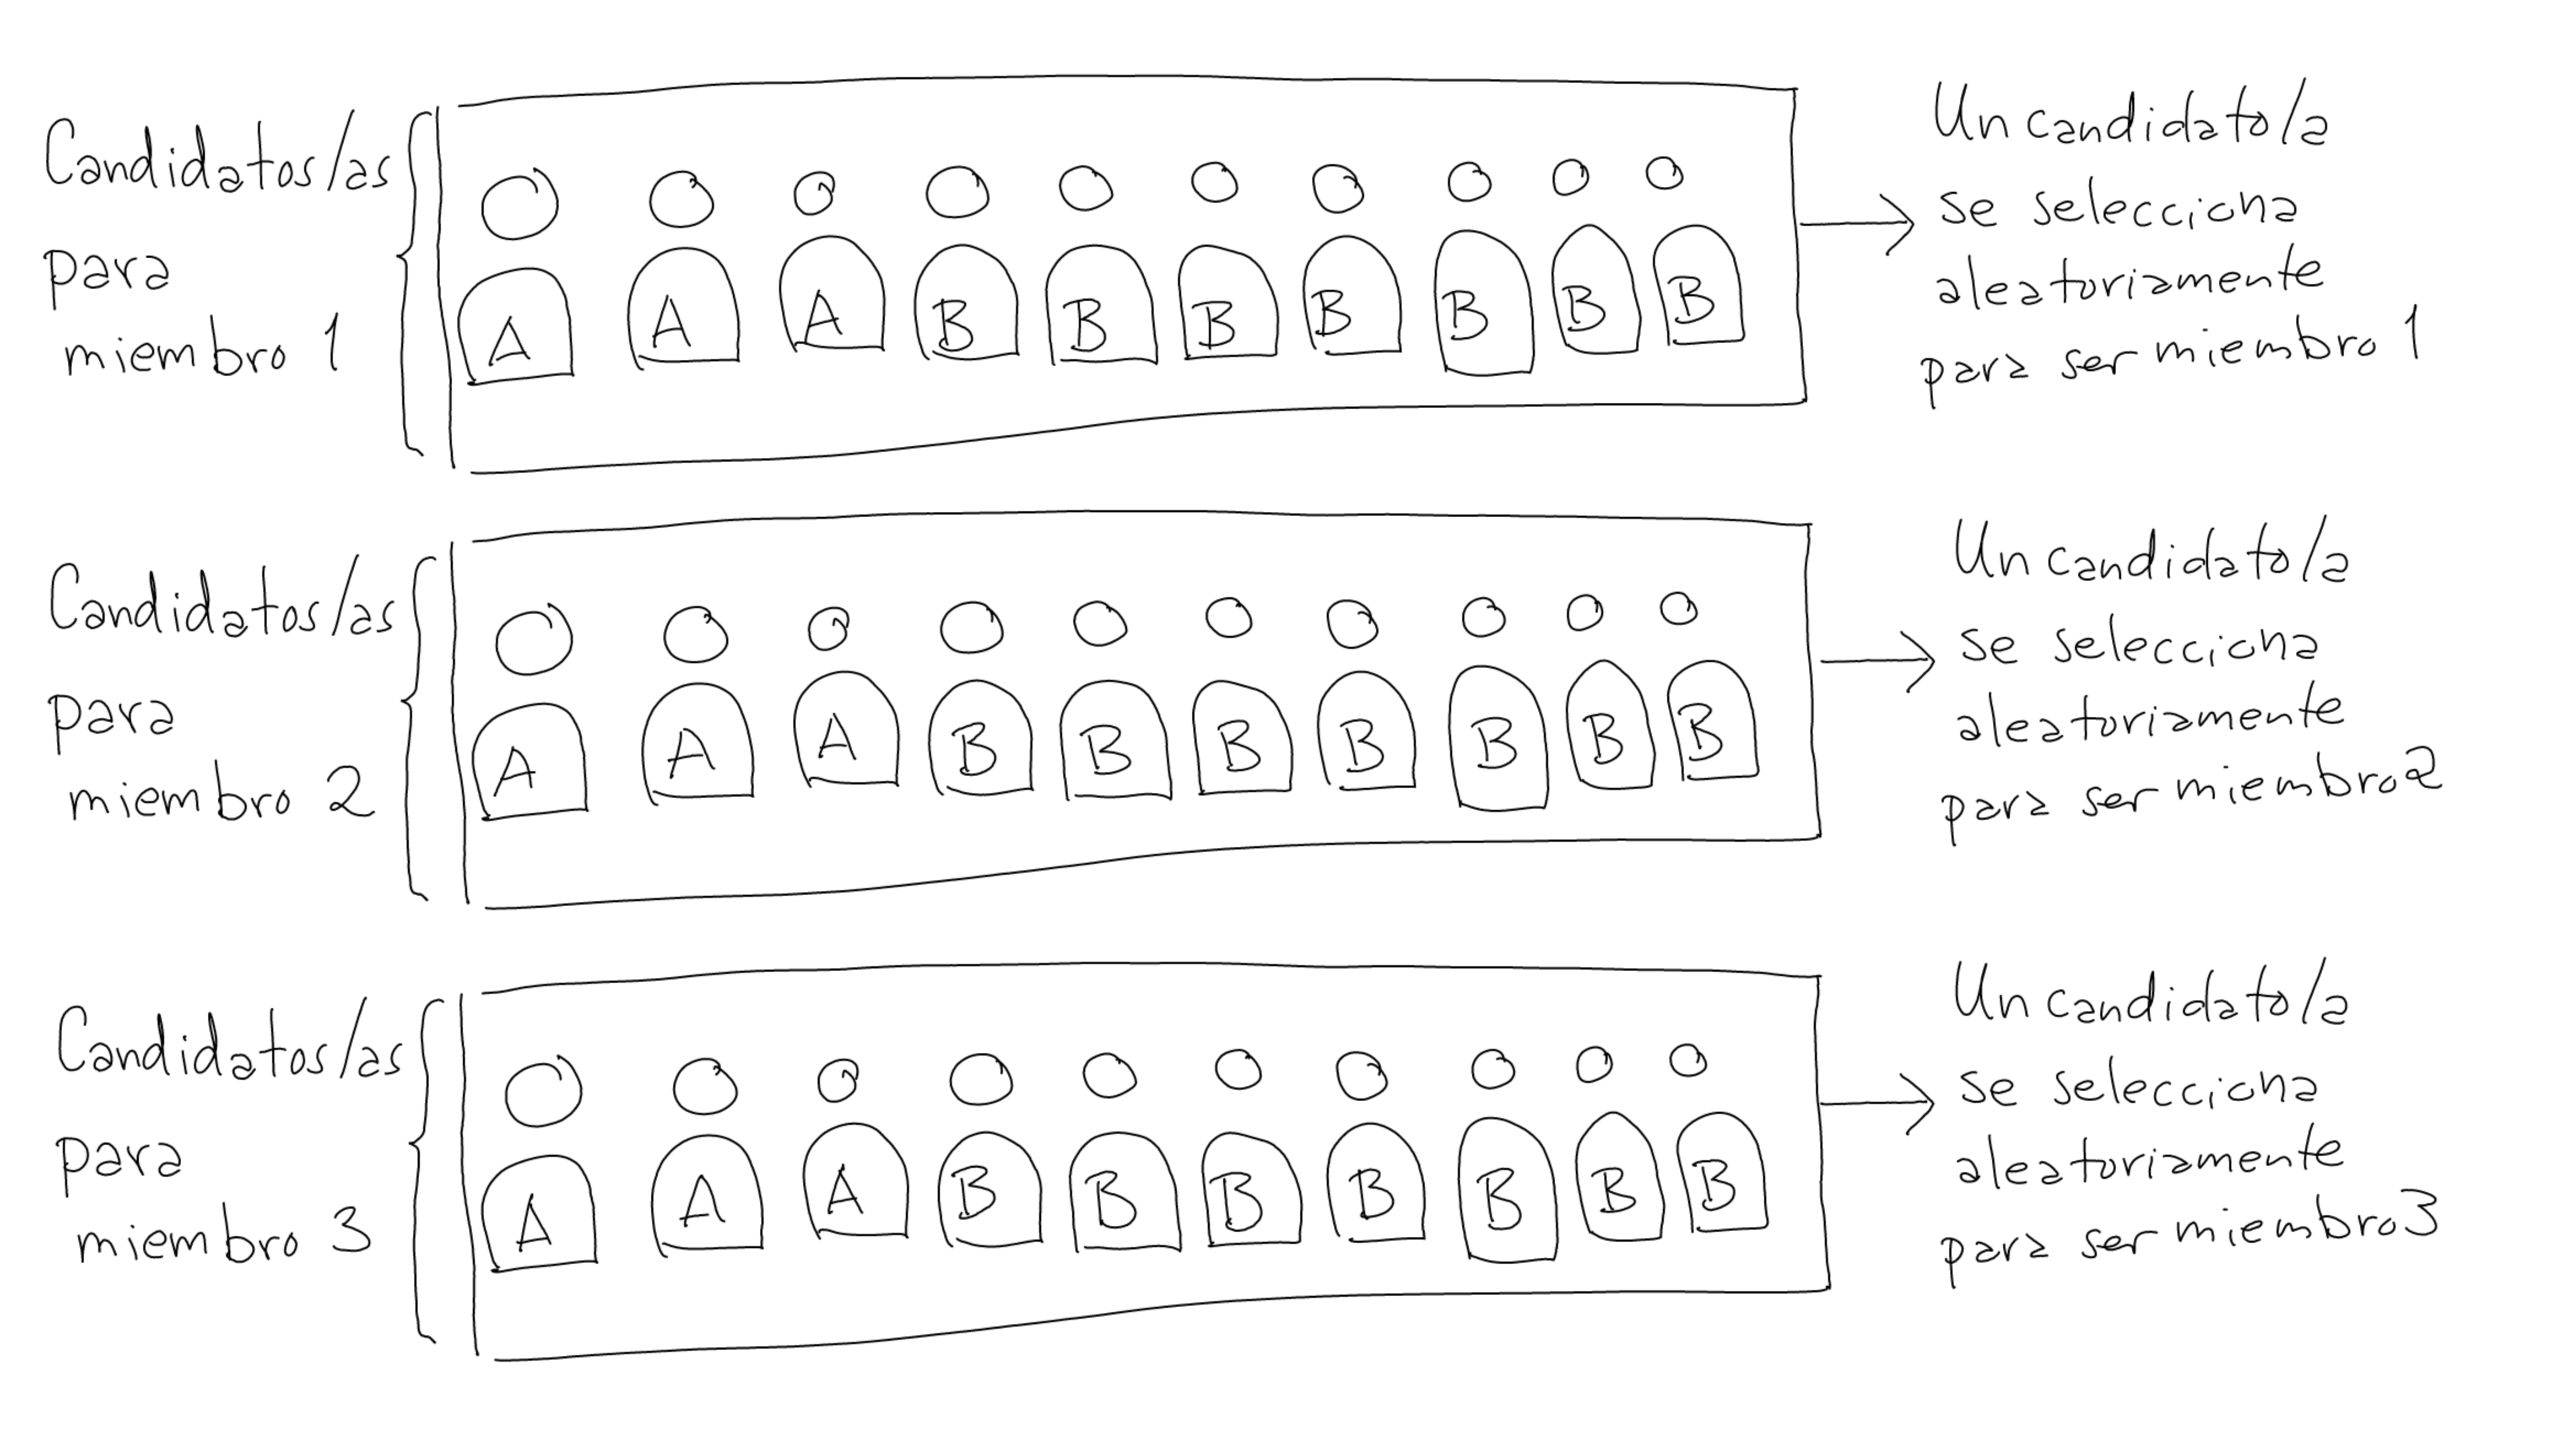 Candidatos/as
para
miembro 1
A A A B B B B B B B
Un candidato/a
se selecciona
aleatoriamente
para ser miembro 1
Candidatos/as
para
miembro 2
A A A B B B B B B B
Un candidato/a
se selecciona
aleatoriamente
para ser miembro 2
Candidatos/as
para
miembro 3
A A A B B B B B B B
Un candidato/a
se selecciona
aleatoriamente
para ser miembro 3